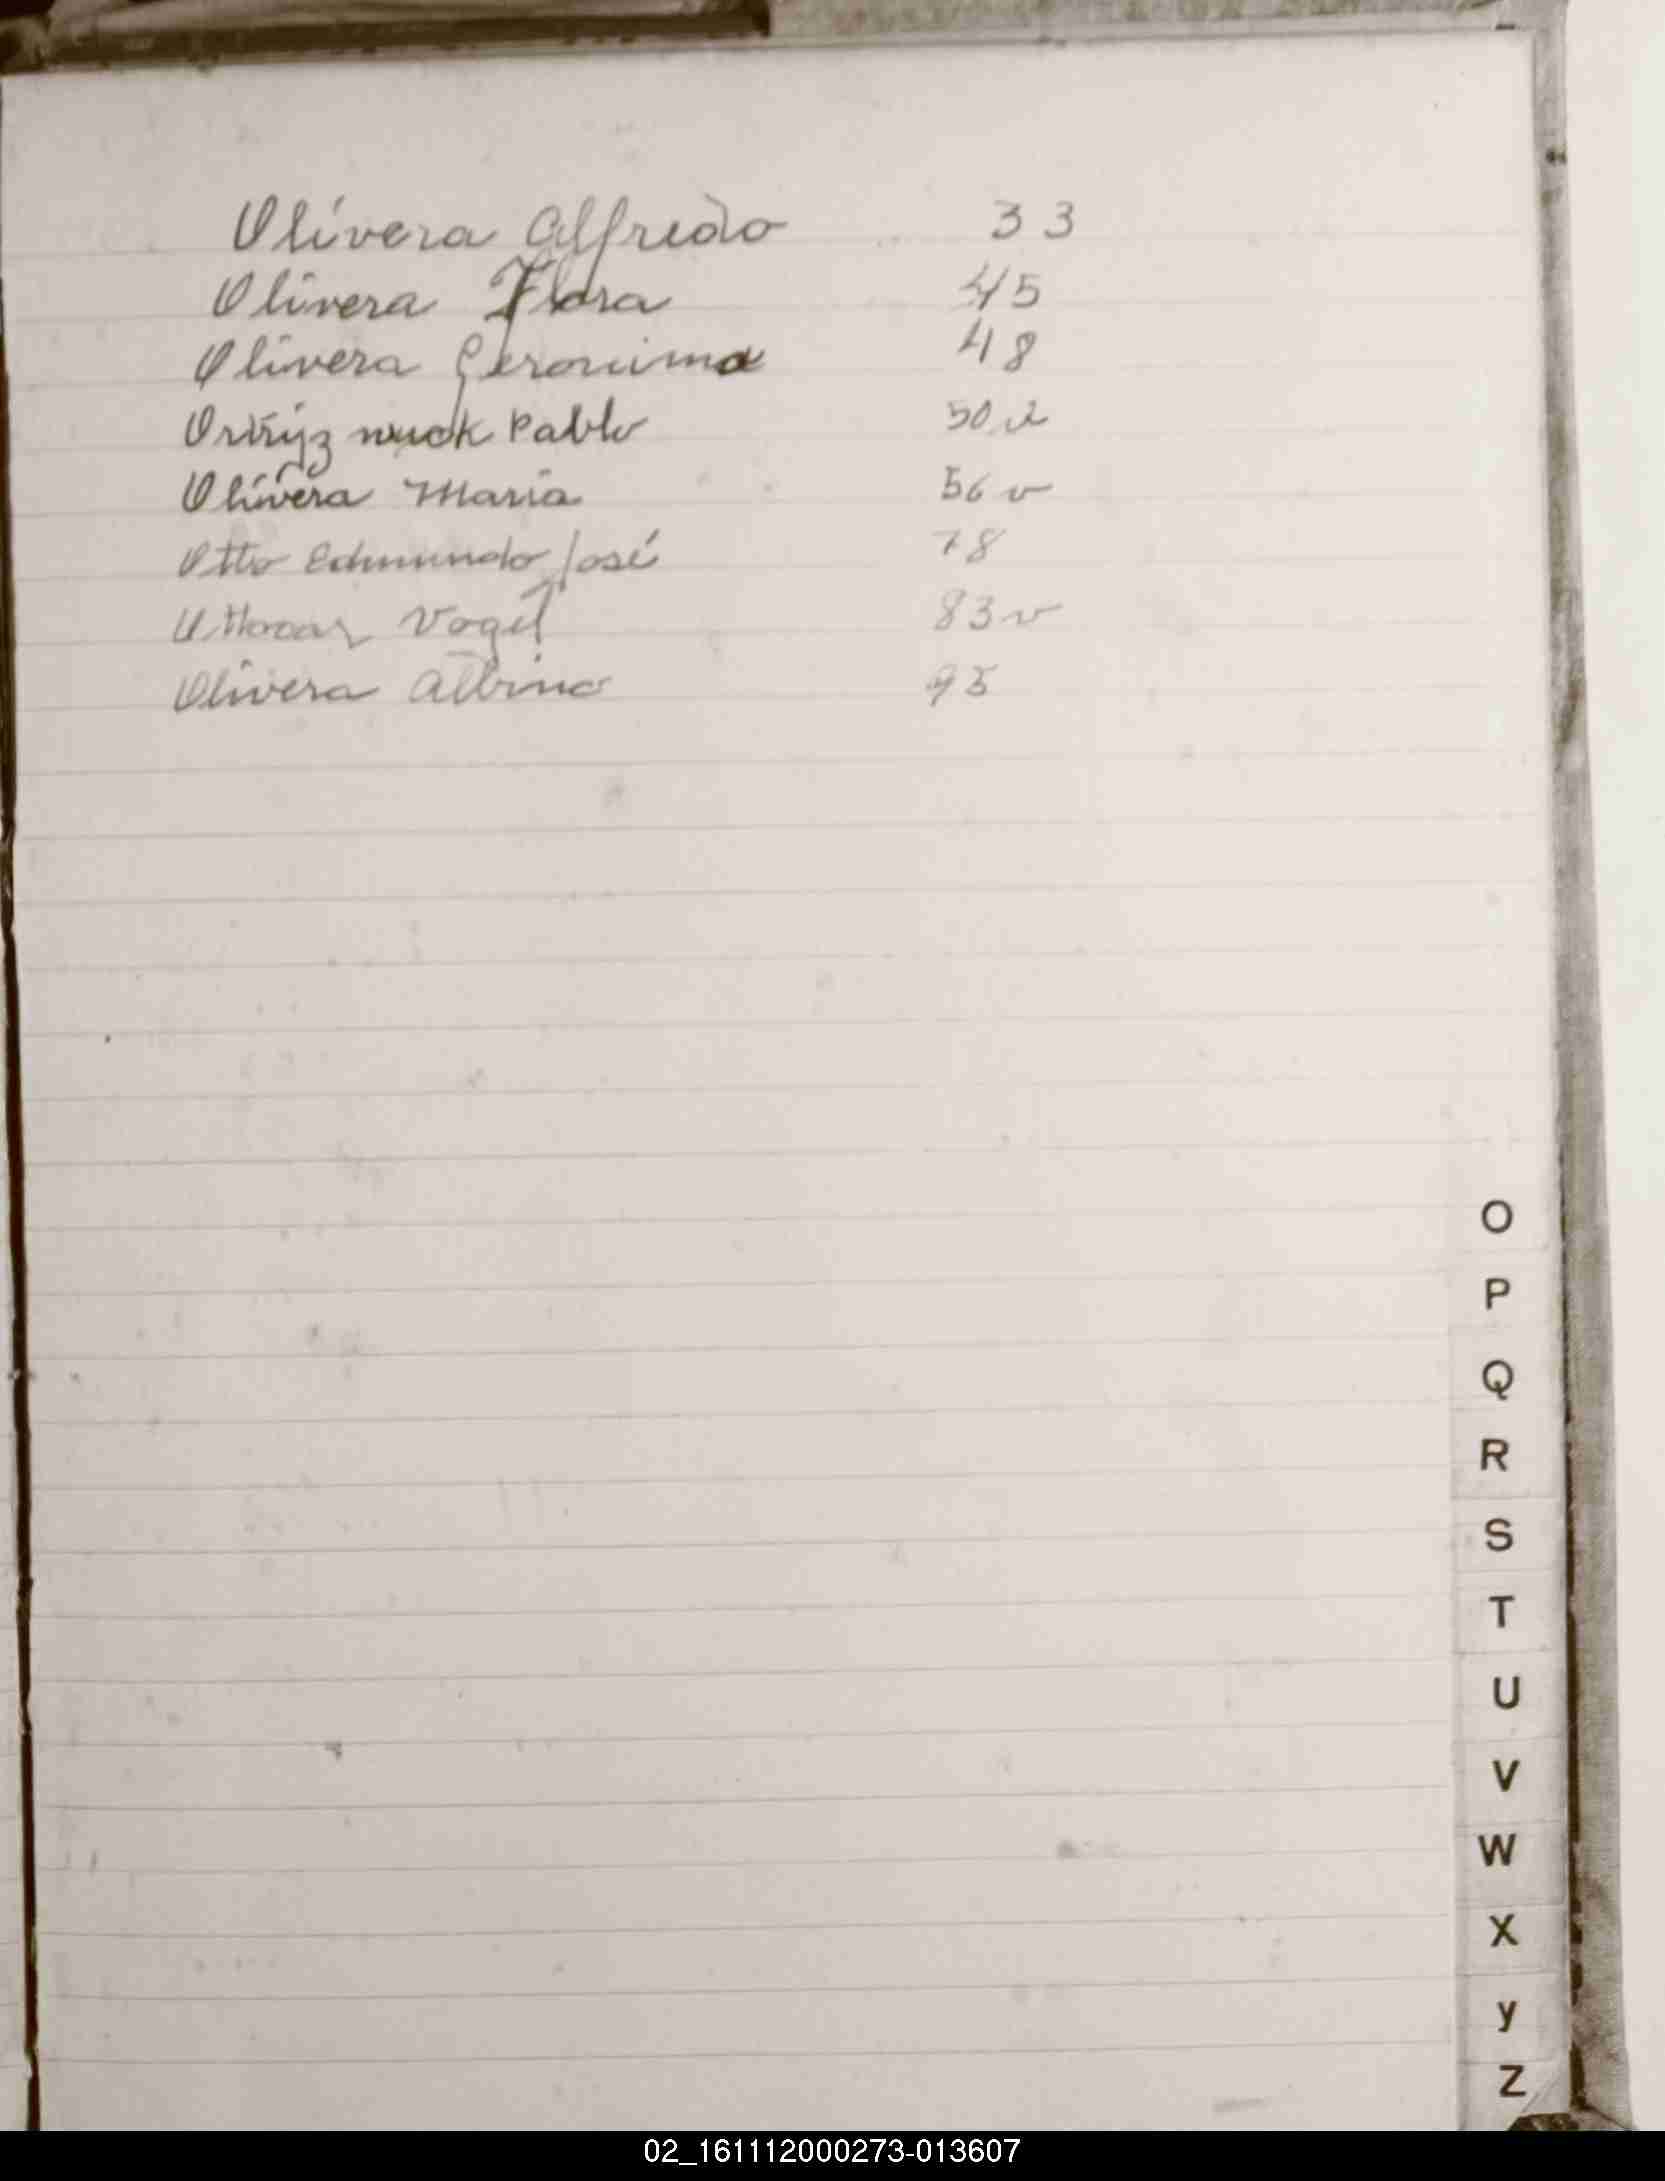 Olivera Alfredo 33
Olivera Flora 45
Olivera Geronima 48
Pablo 50 v
Olivera Maria 56 v
Otto Edmundo José 78
Vogel 83 v
Olivera Albino 95
O
P
Q
R
S
T
U
V
W
X
y
Z
02_161112000273-013607